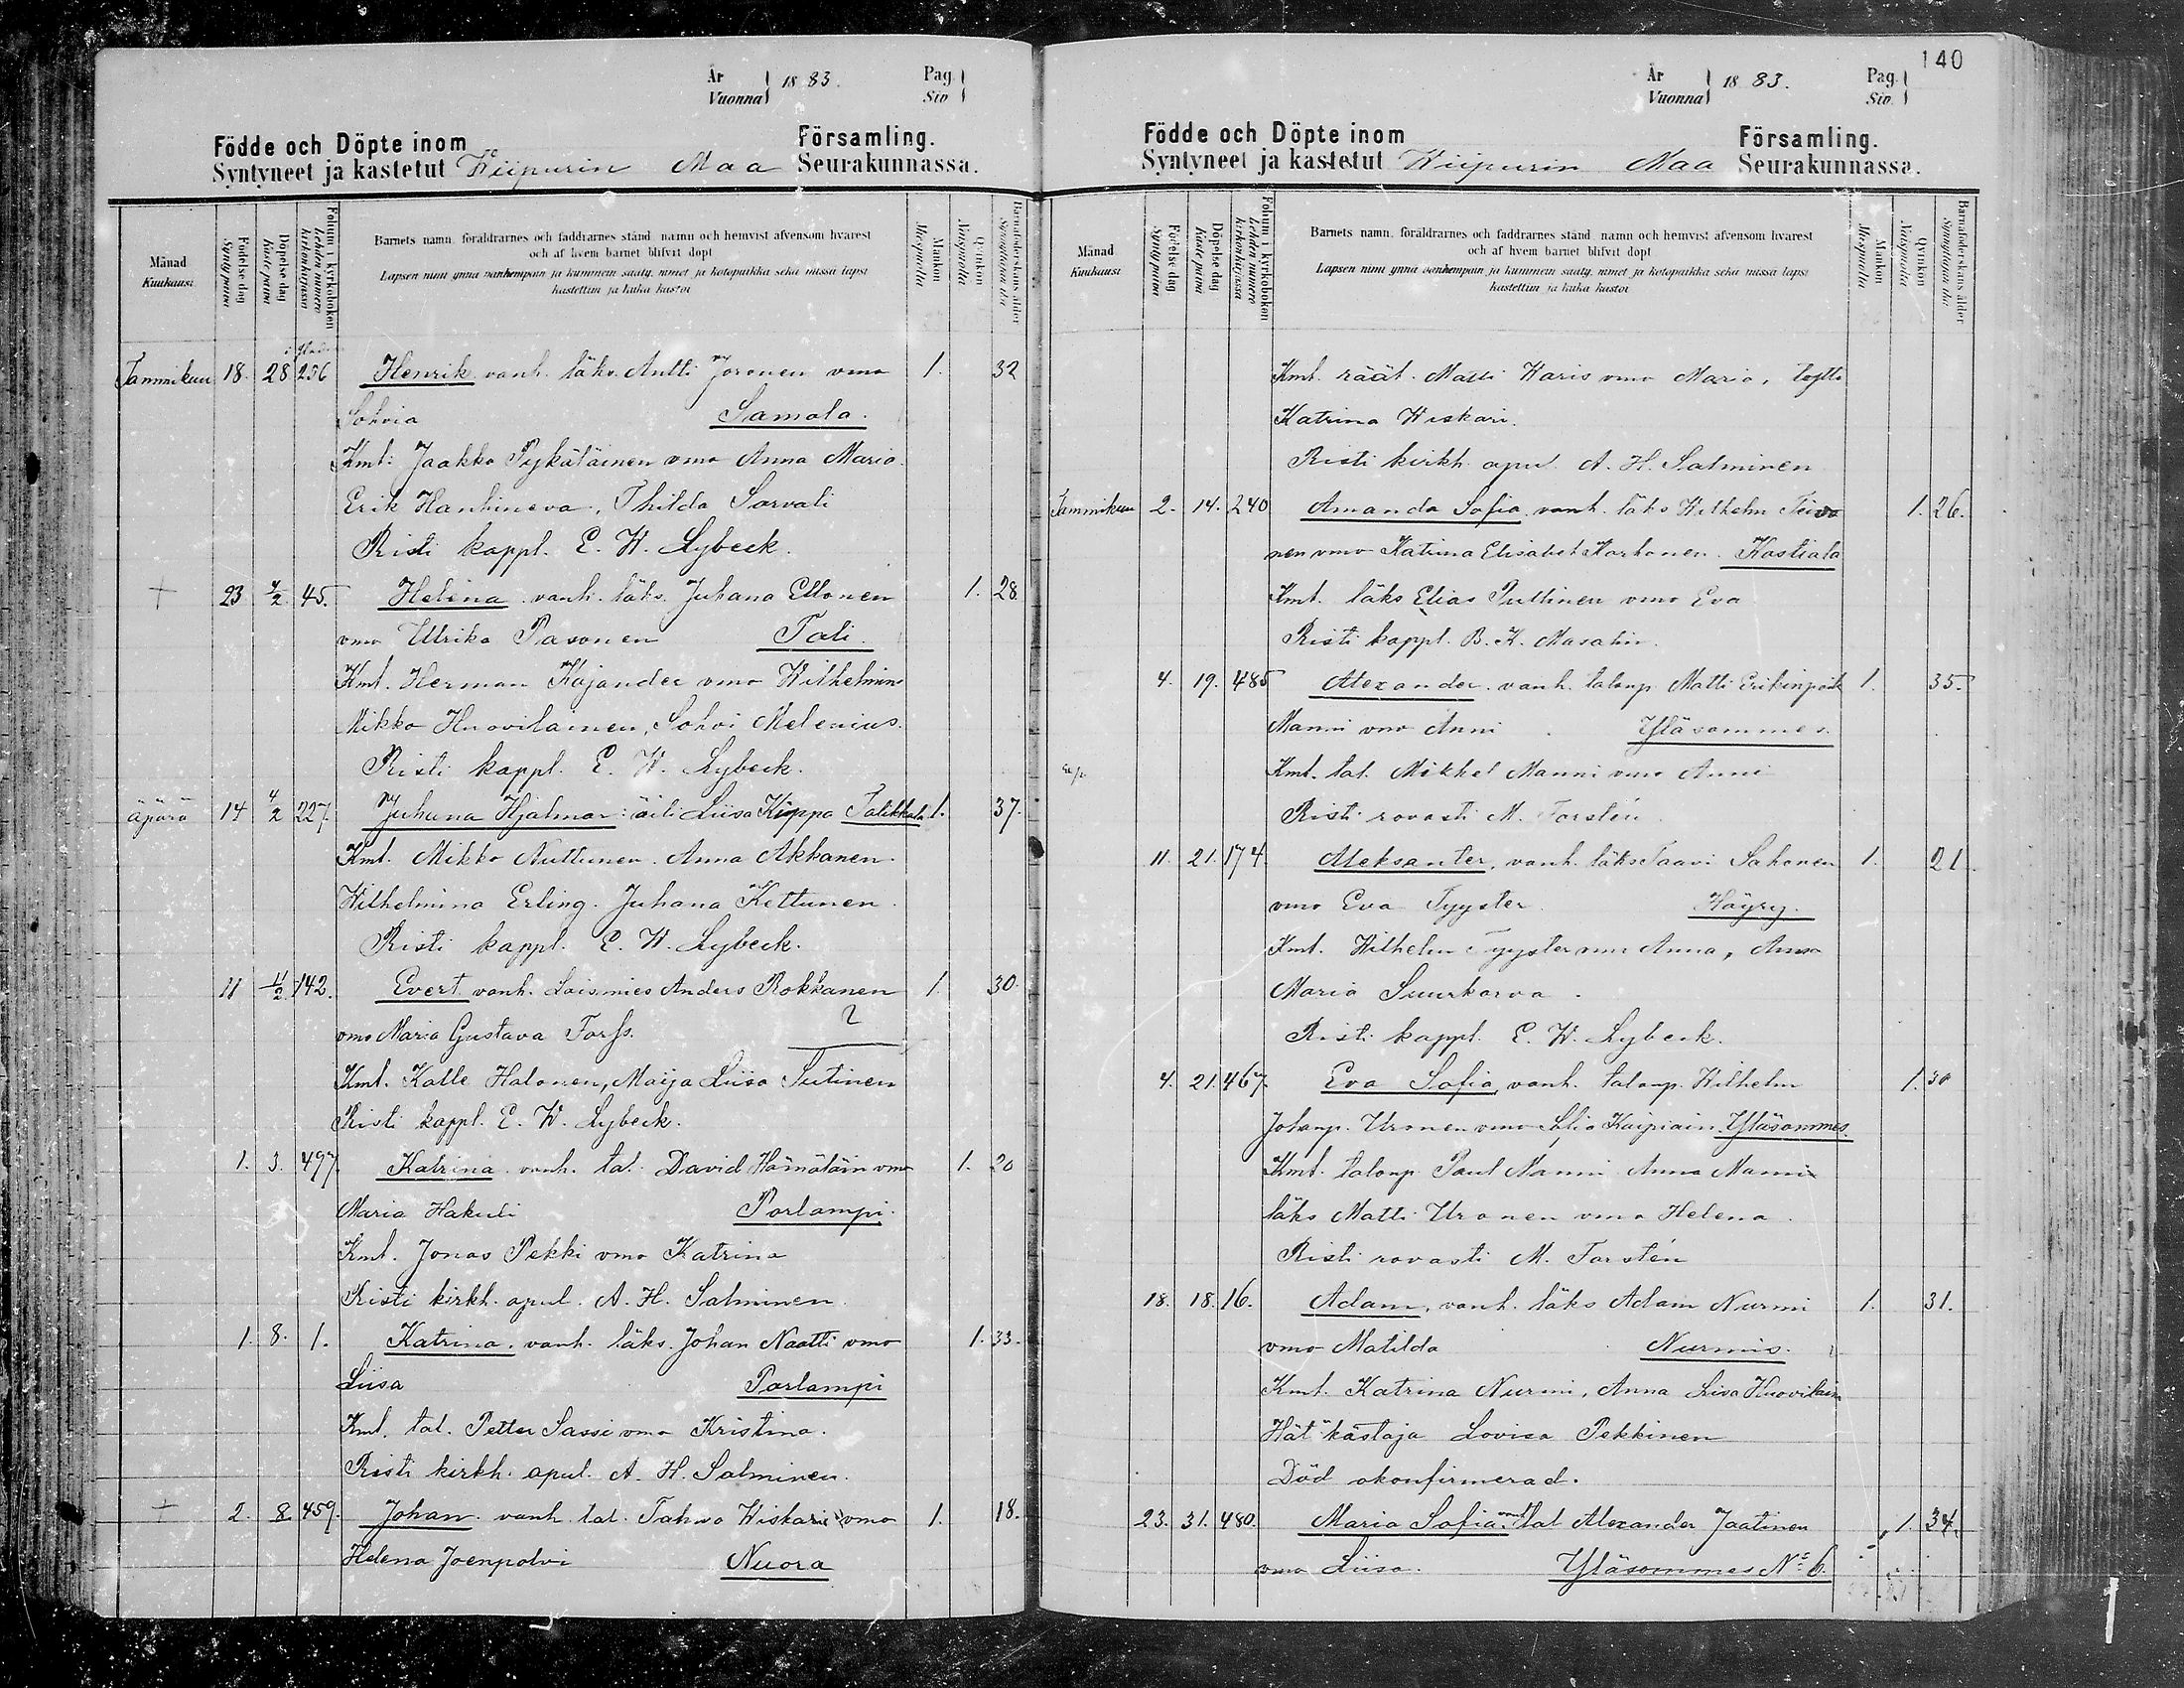 År
Vuonna } 1883.
Pag.
Siv.
Födde och Döpte inom Församling.
Syntyneet ja kastetut Wiipurin Maa Seurakunnassa.
Månad
Kuukausi
Födelse dag
Syntypäivä
Döpelse dag
Kaste päivä
Folium i kyrkoboken
Lehden numero kirkonkirjassa
Barnets namn, föräldrarnes och faddrarnes stånd, namn och hemvist äfvensom hvarest
och af hvem barnet blifvit döpt
Lapsen nimi ynnä vanhempain ja kummein sääty, nimet ja kotopaikka sekä missä lapsi
kastettiin ja kuka kastoi
Mankön
Miespuolta
Qvinkön
Naispuolta
Barnaföderskans ålder
Synnyttäjän ikä
Tammikuu 18. 28 256 Henrik vanh. läks. Antti Joronen vmo 1. 32
Sohvia Samola.
Kmt. Jaakko Pykäläinen vmo Anna Maria
Erik Hanhineva, Thilda Sarvali
Risti kappl. E. W. Lybeck.
+ 23 4/2 45. Helena vanh. läks. Juhana Ellonen 1. 28
vmo Ulrika Pasonen Tali.
Kmt. Herman Kajander vmo Wilhelmin
Mikko Huovilainen, Sohvi Melenius.
Risti kappl. E. W. Lybeck.
äpärä 14 4/2 227. Juhana Hjalmar: äiti Liisa Kippa Talikkala 1. 37.
Kmt. Mikko Nuttunen. Anna Akkanen.
Wilhelmina Erling. Juhana Kettunen.
Risti kappl. E. W. Lybeck.
11 11/2 142. Evert vanh. Loismies Anders Rokkanen 1. 30.
vmo Maria Gustava Forss. ?
Kmt. Kalle Halonen, Maija Liisa Sutinen
Risti kappl. E. W. Lybeck.
1. 3. 497. Katrina vanh. tal. David Hämäläin vmo 1. 20
Maria Hakuli Porlampi.
Kmt. Jonas Pekki vmo Katrina
Risti kirkh. apul. A. H. Salminen
1. 8. 1. Katrina. vanh. läks. Johan Naatti vmo 1. 33.
Liisa Porlampi
Kmt. tal. Petter Sassi vmo Kristina.
Risti kirkh. apul. A. H. Salminen.
+ 2. 8 459. Johan vanh. tal. Tahvo Wiskari vmo 1. 18.
Helena Joenpolvi Nuora
140
År
Vuonna } 1883.
Pag.
Siv.
Födde och Döpte inom Församling.
Syntyneet ja kastetut Wiipurin Maa Seurakunnassa.
Månad
Kuukausi
Födelse dag
Syntypäivä
Döpelse dag
Kaste päivä
Folium i kyrkoboken
Lehden numero kirkonkirjassa
Barnets namn, föräldrarnes och faddrarnes stånd, namn och hemvist äfvensom hvarest
och af hvem barnet blifvit döpt
Lapsen nimi ynnä vanhempain ja kummein sääty, nimet ja kotopaikka sekä missä lapsi
kastettiin ja kuka kastoi
Mankön
Miespuolta
Qvinkön
Naispuolta
Barnaföderskans ålder
Synnyttäjän ikä
Kmt. räät. Matti Karis vmo Maria, tytt.
Katrina Wiskari.
Risti kirkh. apul. A. H. Salminen
Tammikuu 2. 14. 240 Amanda Sofia vanh. läks Wilhelm Teivo 1. 26.
nen vmo Katrina Elisabet Karhonen. Kostiala
Kmt. läks Elias Pullinen vmo Eva
Risti kappl. B. K. Masalin.
4. 19. 485 Alexander. vanh. talonp. Matti Erikinpoik 1. 35.
Manni vmo Anni Yläsommes.
Kmt. tal. Mikkel Manni vmo Anni
Risti rovasti M. Forstén
11. 21. 174. Aleksanter, vanh. läks Taavi Sahonen 1. 21.
vmo Eva Tyyster. Häyry.
Kmt. Wilhelm Tyyster vmo Anna, Anna
Maria Suurkorva.
Risti kappl. E. W. Lybeck.
4. 21. 467. Eva Sofia, vanh. talonp. Wilhelm 1. 30
Johanp. Uronen vmo Kaipiain. Yläsommes.
Kmt. talonp. Paul Manni Anna Manni
läks Matti Uronen vmo Helena.
Risti rovasti M. Forstén
18. 18. 16. Adam, vanh. läks Adam Nurmi 1. 31.
vmo Matilda Nurmis.
Kmt. Katrina Nurmi, Anna Liisa Huovilain
Hät kästaja Lovisa Pekkinen
Död okonfirmerad.
23. 31. 480. Maria Sofia. vanh. tal Alexander Jaatinen 1. 34.
vmo Liisa. Yläsommes No 6.